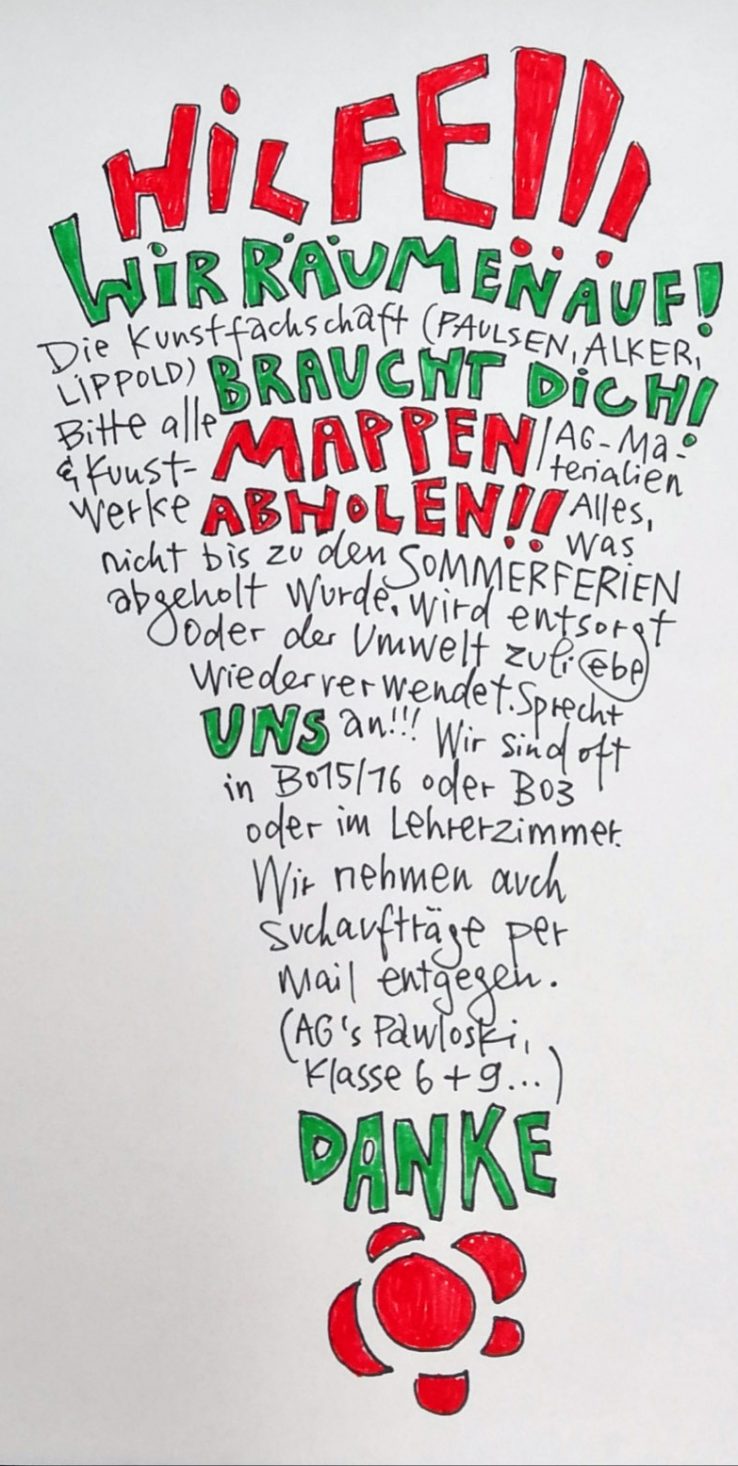 HiLFE!!!
WiR RÄUMEN AUF!
Die Kunstfachschaft (PAULSEN, ALKER,
LiPPOLD) BRAUCHT DiCH!
Bitte alle MAPPEN/AG-Ma-
& Kunst- terialien
Werke ABHOLEN!! Alles,
was
nicht bis zu den SOMMERFERIEN
abgeholt wurde, wird entsorgt
Oder der Umwelt zuliebe
wiederverwendet. Sprecht
UNS an!!! Wir sind oft
in B015/16 oder B03
oder im Lehrerzimmer.
Wir nehmen auch
Suchaufträge per
Mail entgegen.
(AG's Pawloski,
Klasse 6+9...)
DANKE